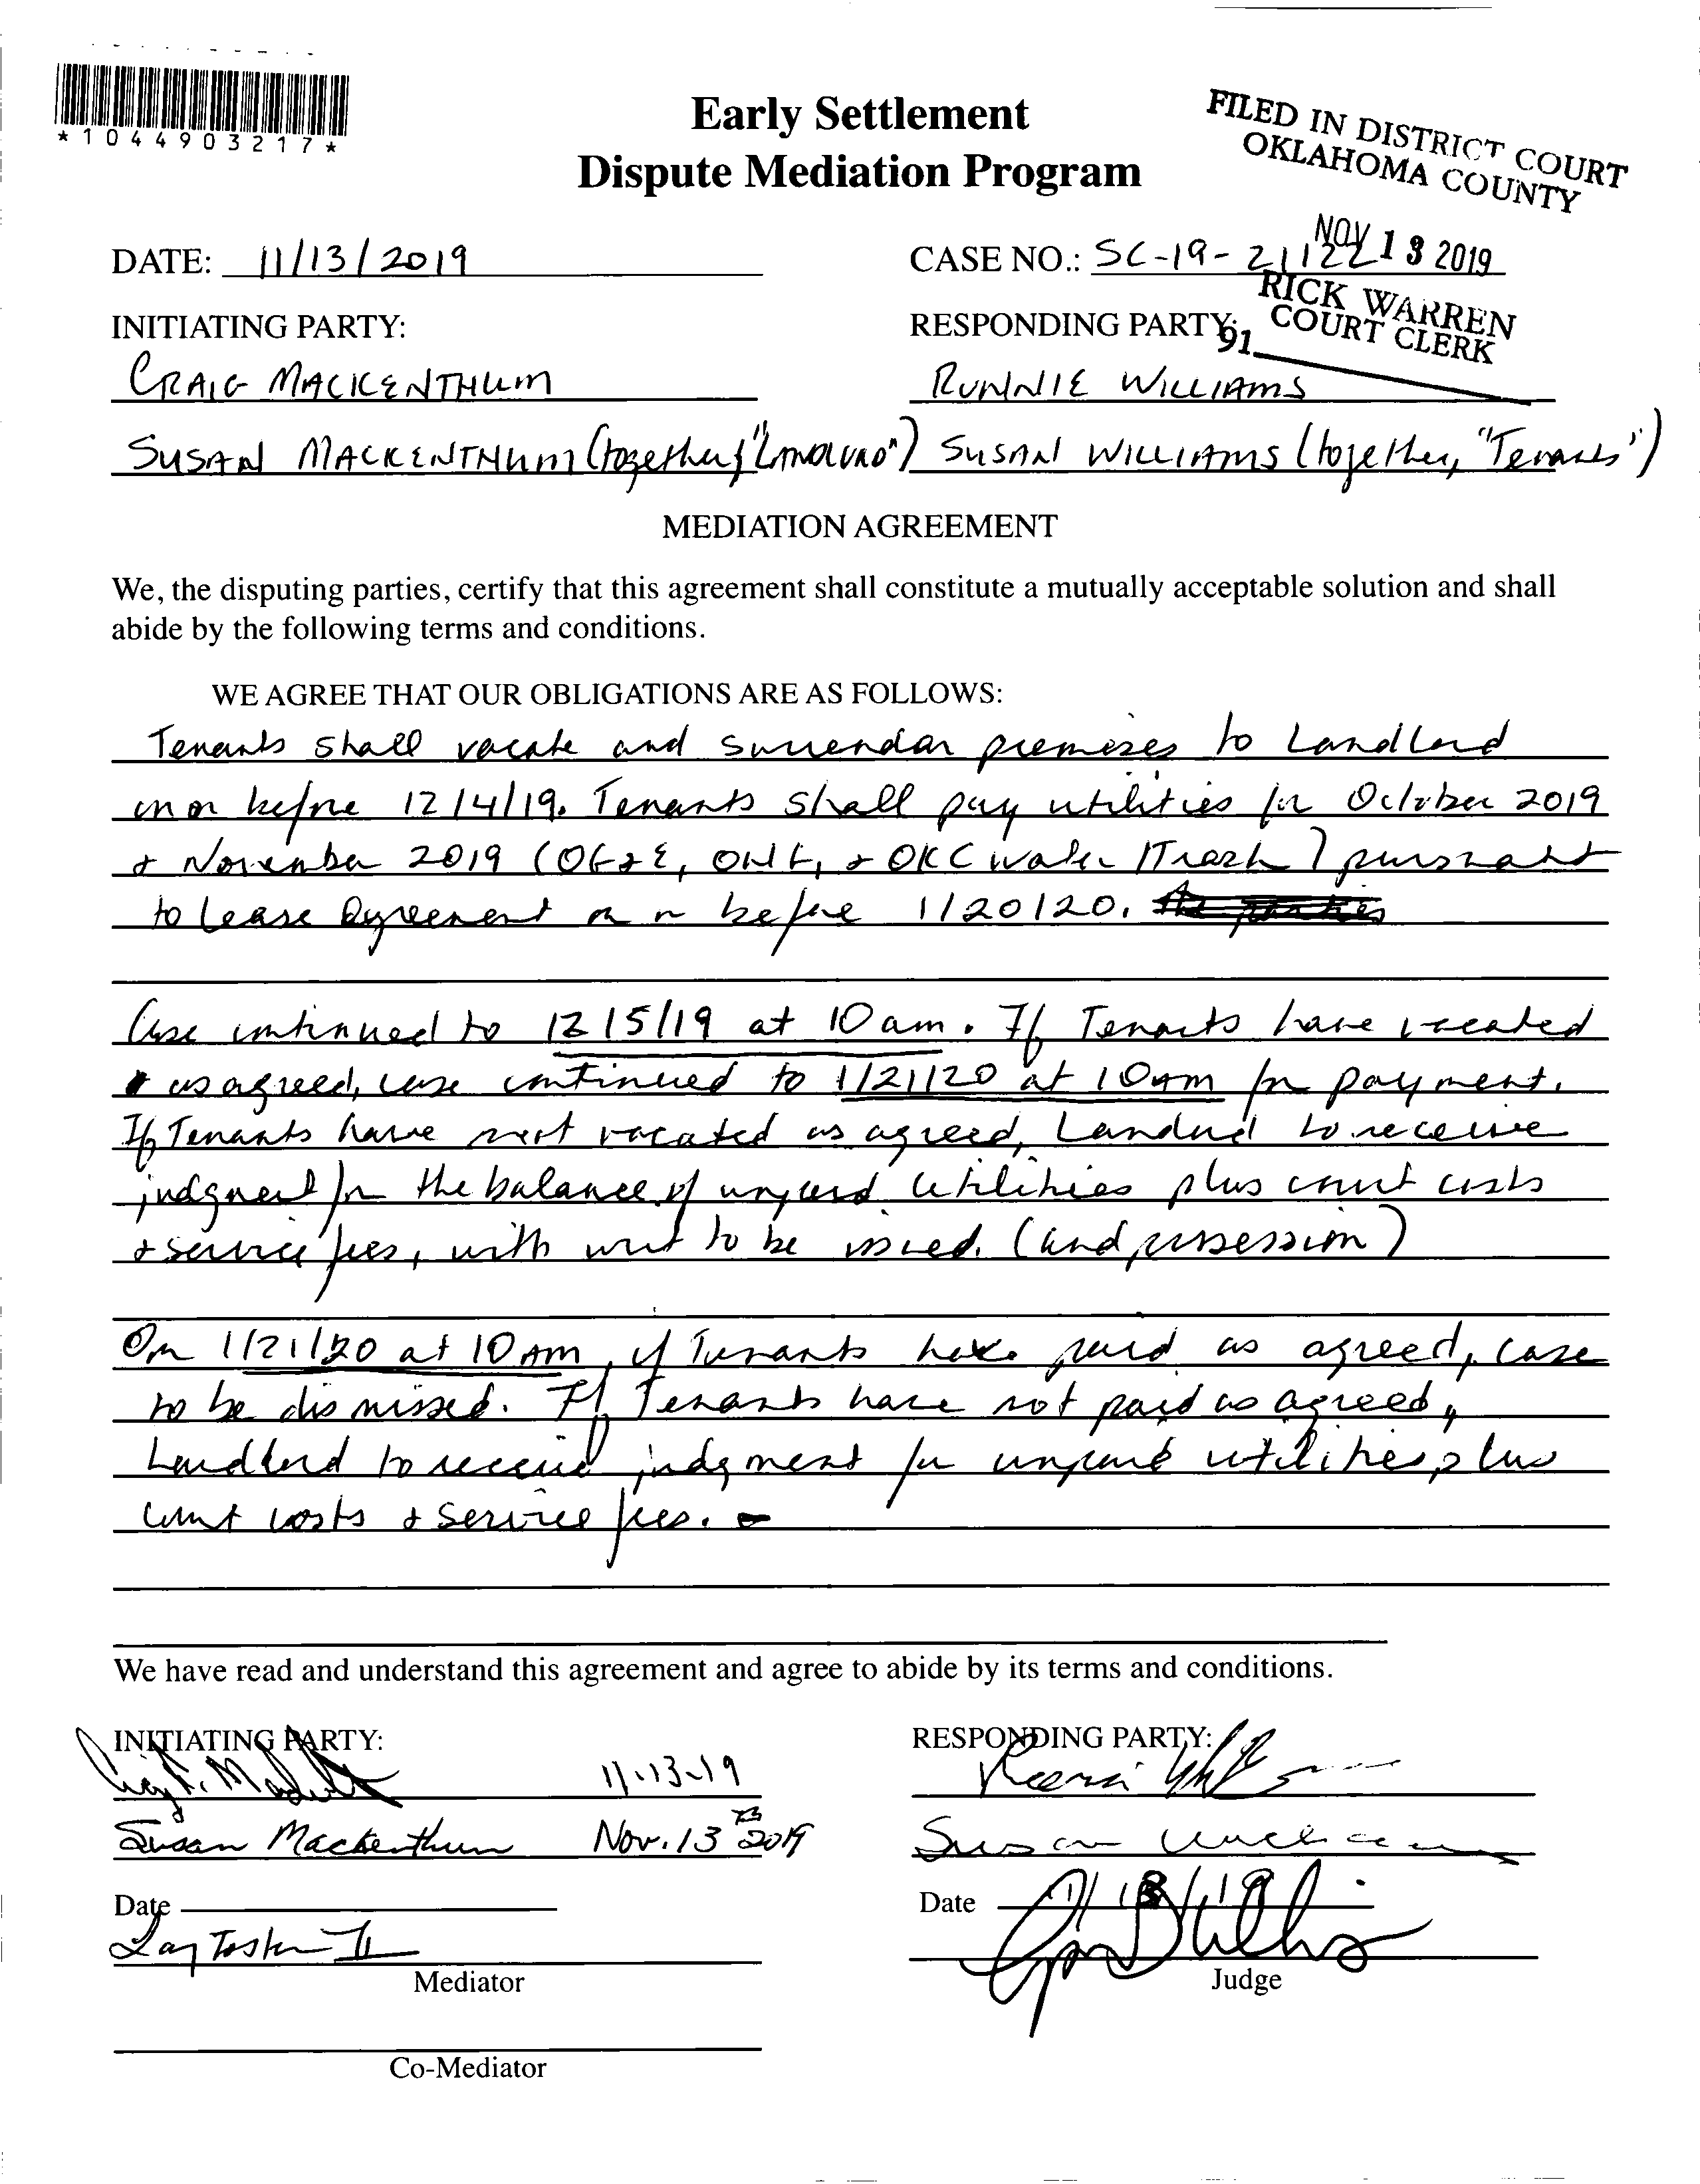 *1044903217*
Early Settlement
Dispute Mediation Program
FILED IN DISTRICT COURT
OKLAHOMA COUNTY
NOV 13 2019
RICK WARREN
COURT CLERK
91
DATE: 11/13/2019
CASE NO.: SC-19-21122
INITIATING PARTY:
RESPONDING PARTY:
CRAIG MACKENTHUM
RONNIE WILLIAMS
SUSAN MACKENTHUM (together, "LANDLORD")
SUSAN WILLIAMS (together, "Tenants")
MEDIATION AGREEMENT
We, the disputing parties, certify that this agreement shall constitute a mutually acceptable solution and shall
abide by the following terms and conditions.
WE AGREE THAT OUR OBLIGATIONS ARE AS FOLLOWS:
Tenants shall vacate and surrendar premises to Landlord
on or before 12/4/19. Tenants shall pay utilities for October 2019
& November 2019 (OG&E, ONG, & OKC water/Trash) pursuant
to lease agreement on or before 1/20/20. the parties
Case continued to 12/5/19 at 10 am. If Tenants have vacated
as agreed, case continued to 1/21/20 at 10 am for payment.
If Tenants have not vacated as agreed, Landlord to receive
judgment for the balance of unpaid utilities plus court costs
& service fees, with writ to be issued. (and possession)
On 1/21/20 at 10 AM, if Tenants have paid as agreed, case
to be dismissed. If Tenants have not paid as agreed,
Landlord to receive judgment for unpaid utilities plus
court costs & service fees.
We have read and understand this agreement and agree to abide by its terms and conditions.
INITIATING PARTY:
RESPONDING PARTY:
11-13-19
Susan Mackenthum Nov. 13 2019
Susan Williams
Date
Date 11/13/19
Mediator
Judge
Co-Mediator